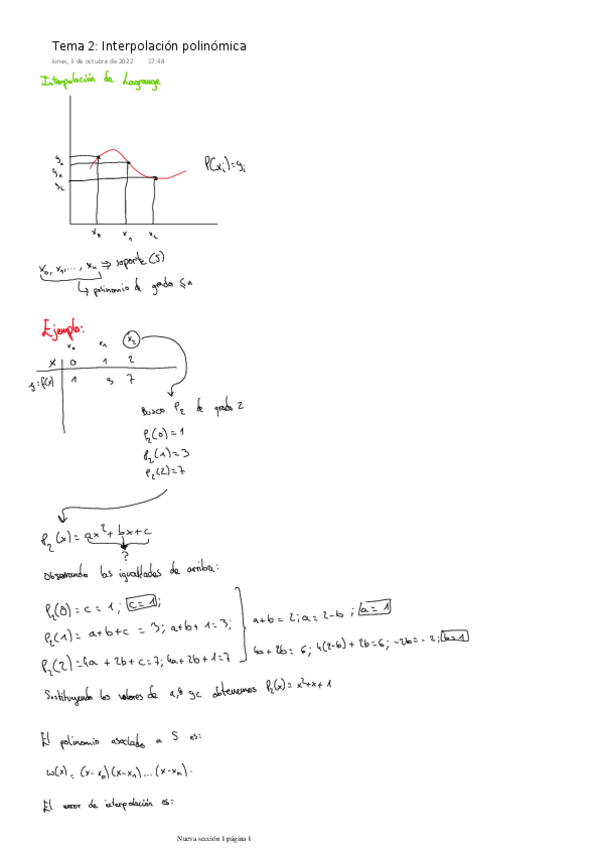 Tema 2: Interpolación polinómica
lunes, 3 de octubre de 2022 17:48
Interpolación de Lagrange
P(xᵢ)=yᵢ
y₀
y₁
y₂
x₀ x₁ x₂
x₀, x₁, ..., xₙ ⇒ soporte (S)
↳ polinomio de grado ≤ n
Ejemplo:
x₀ x₁ x₂
x 0 1 2
y=f(x) 1 3 7
Busco P₂ de grado 2
P₂(0)=1
P₂(1)=3
P₂(2)=7
P₂(x)= ax²+bx+c
?
Observando las igualdades de arriba:
P₂(0)=c=1; c=1;
P₂(1)= a+b+c = 3; a+b+1=3;
a+b=2; a=2-b; a=1
P₂(2)=4a+2b+c=7; 4a+2b+1=7
4a+2b=6; 4(2-b)+2b=6; -2b=-2; b=1
Sustituyendo los valores de a,b y c obtenemos P₂(x)=x²+x+1
El polinomio asociado a S es:
ω(x)=(x-x₀)(x-x₁)...(x-xₙ).
El error de interpolación es:
Nueva sección 1 página 1